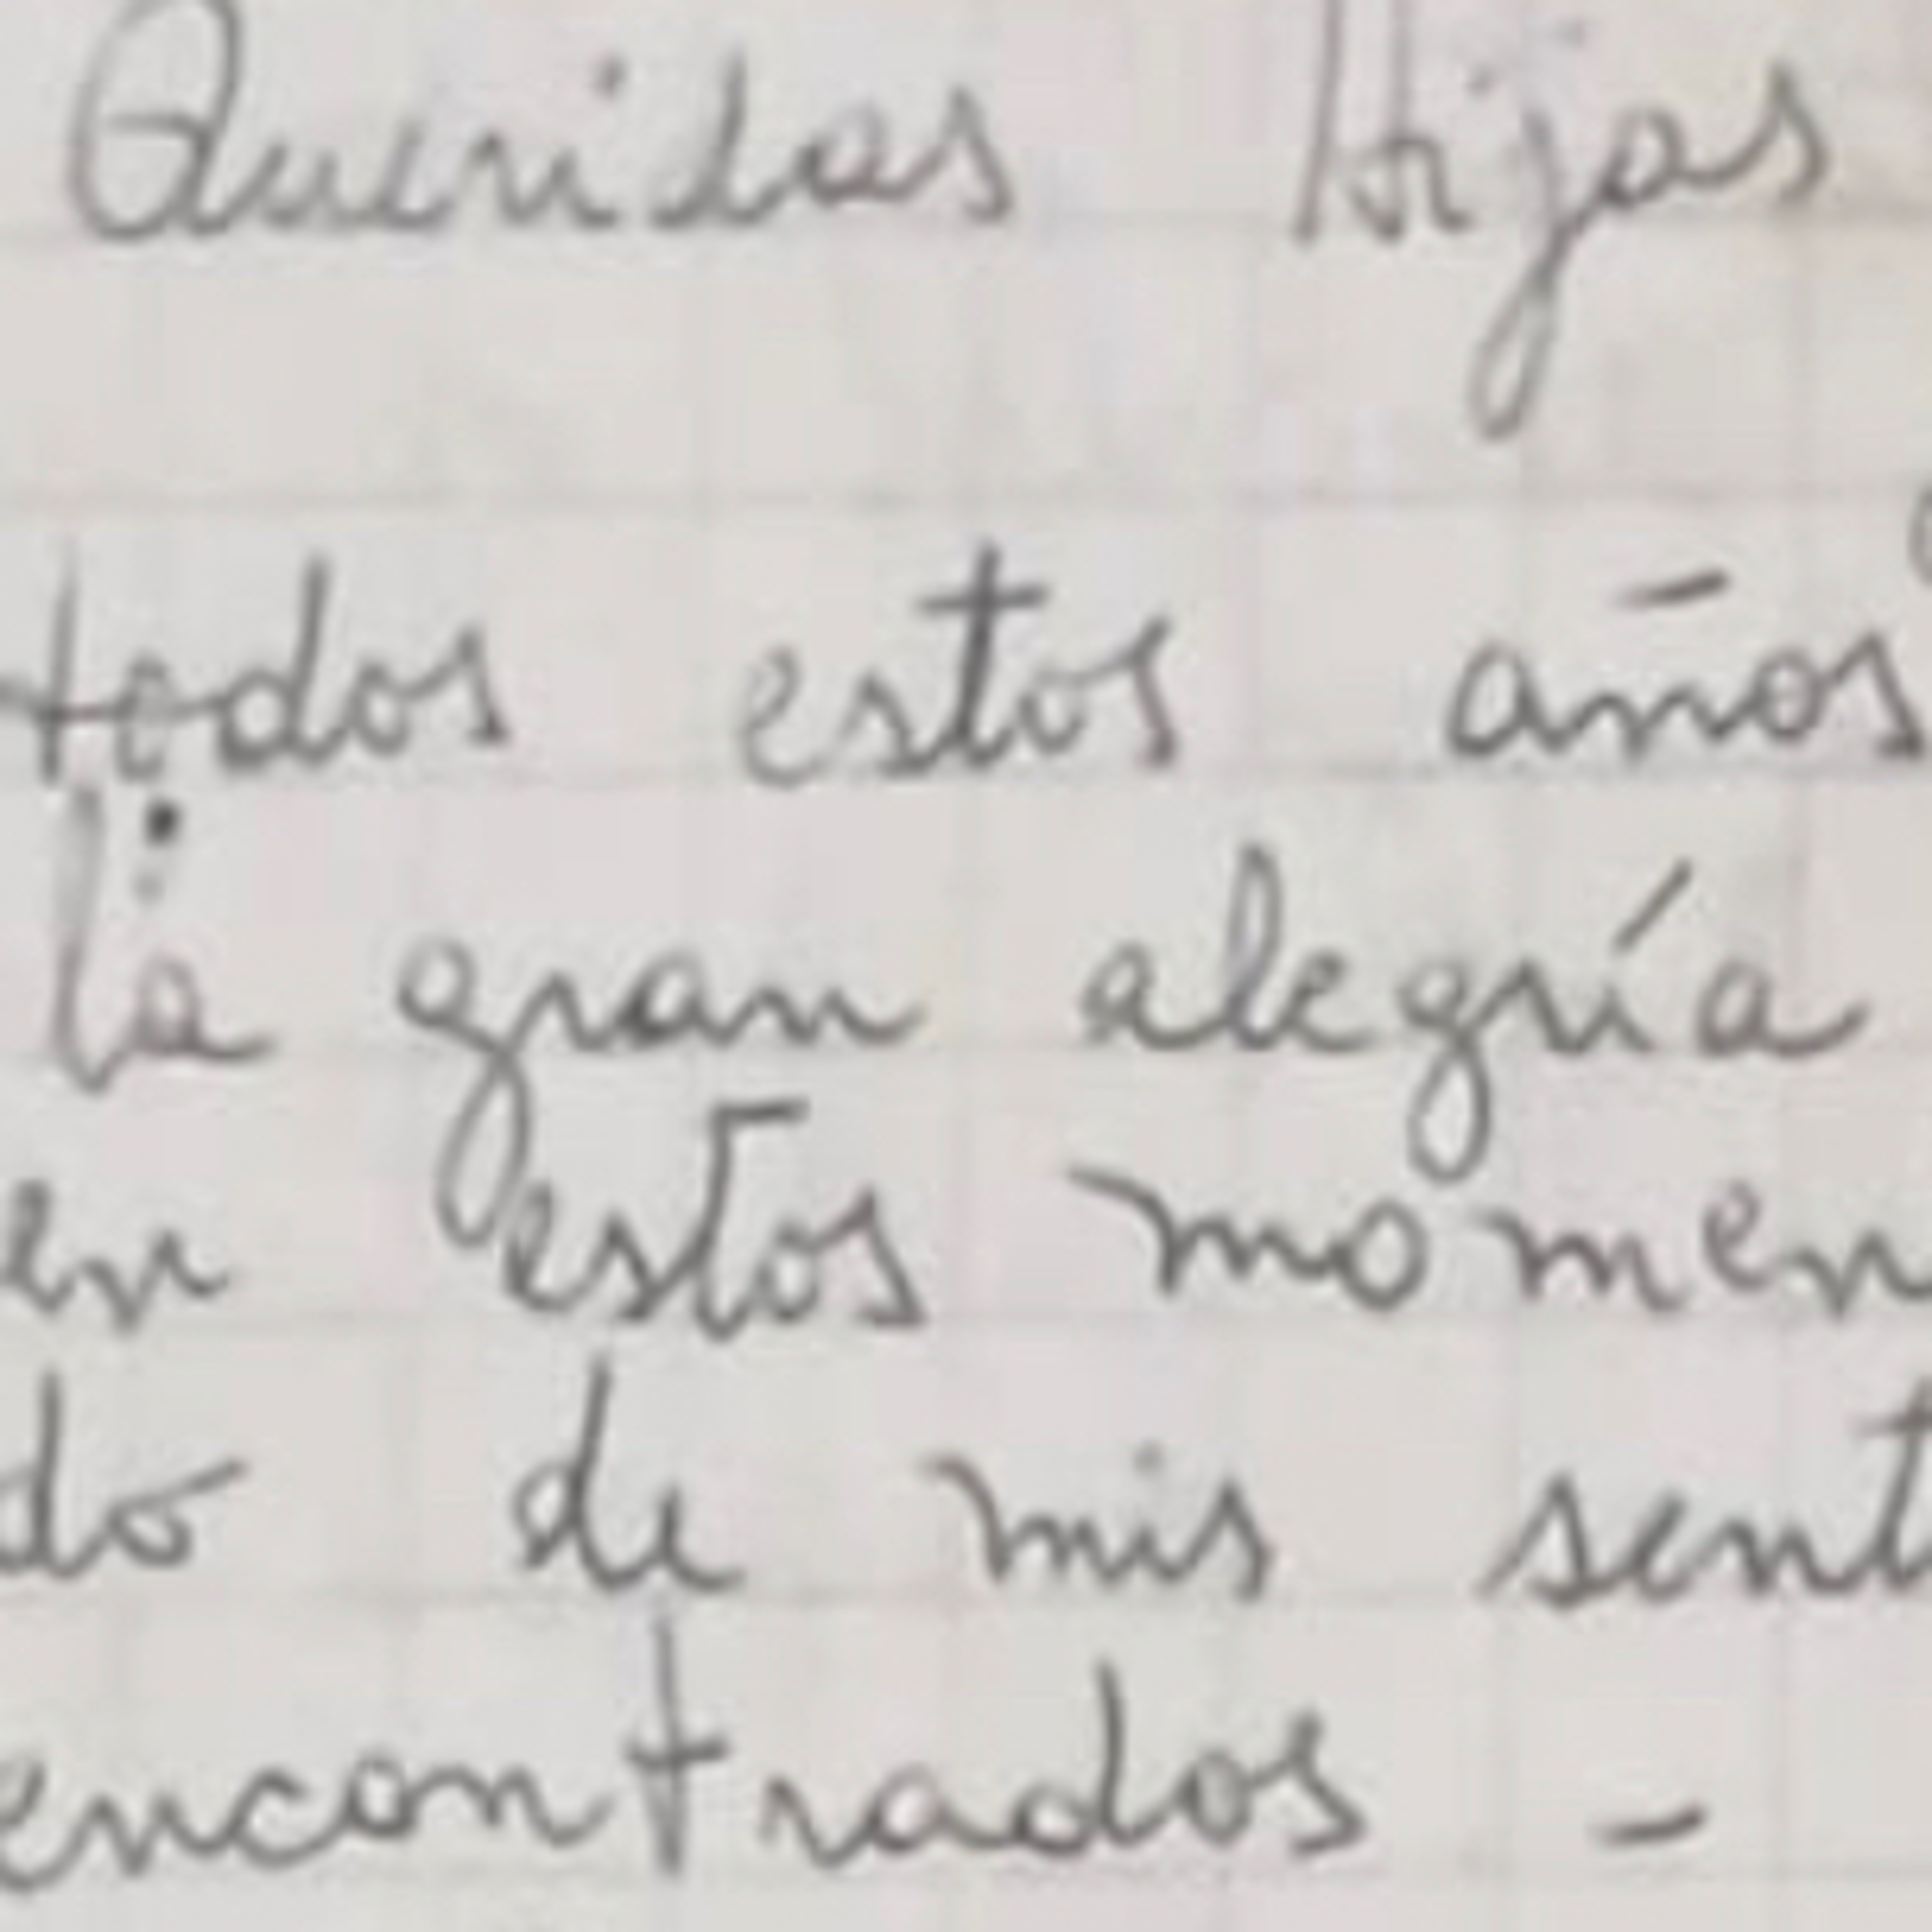 Queridas Hijas
todos estos años
la gran alegría
en estos momen
do de mis sent
encontrados -